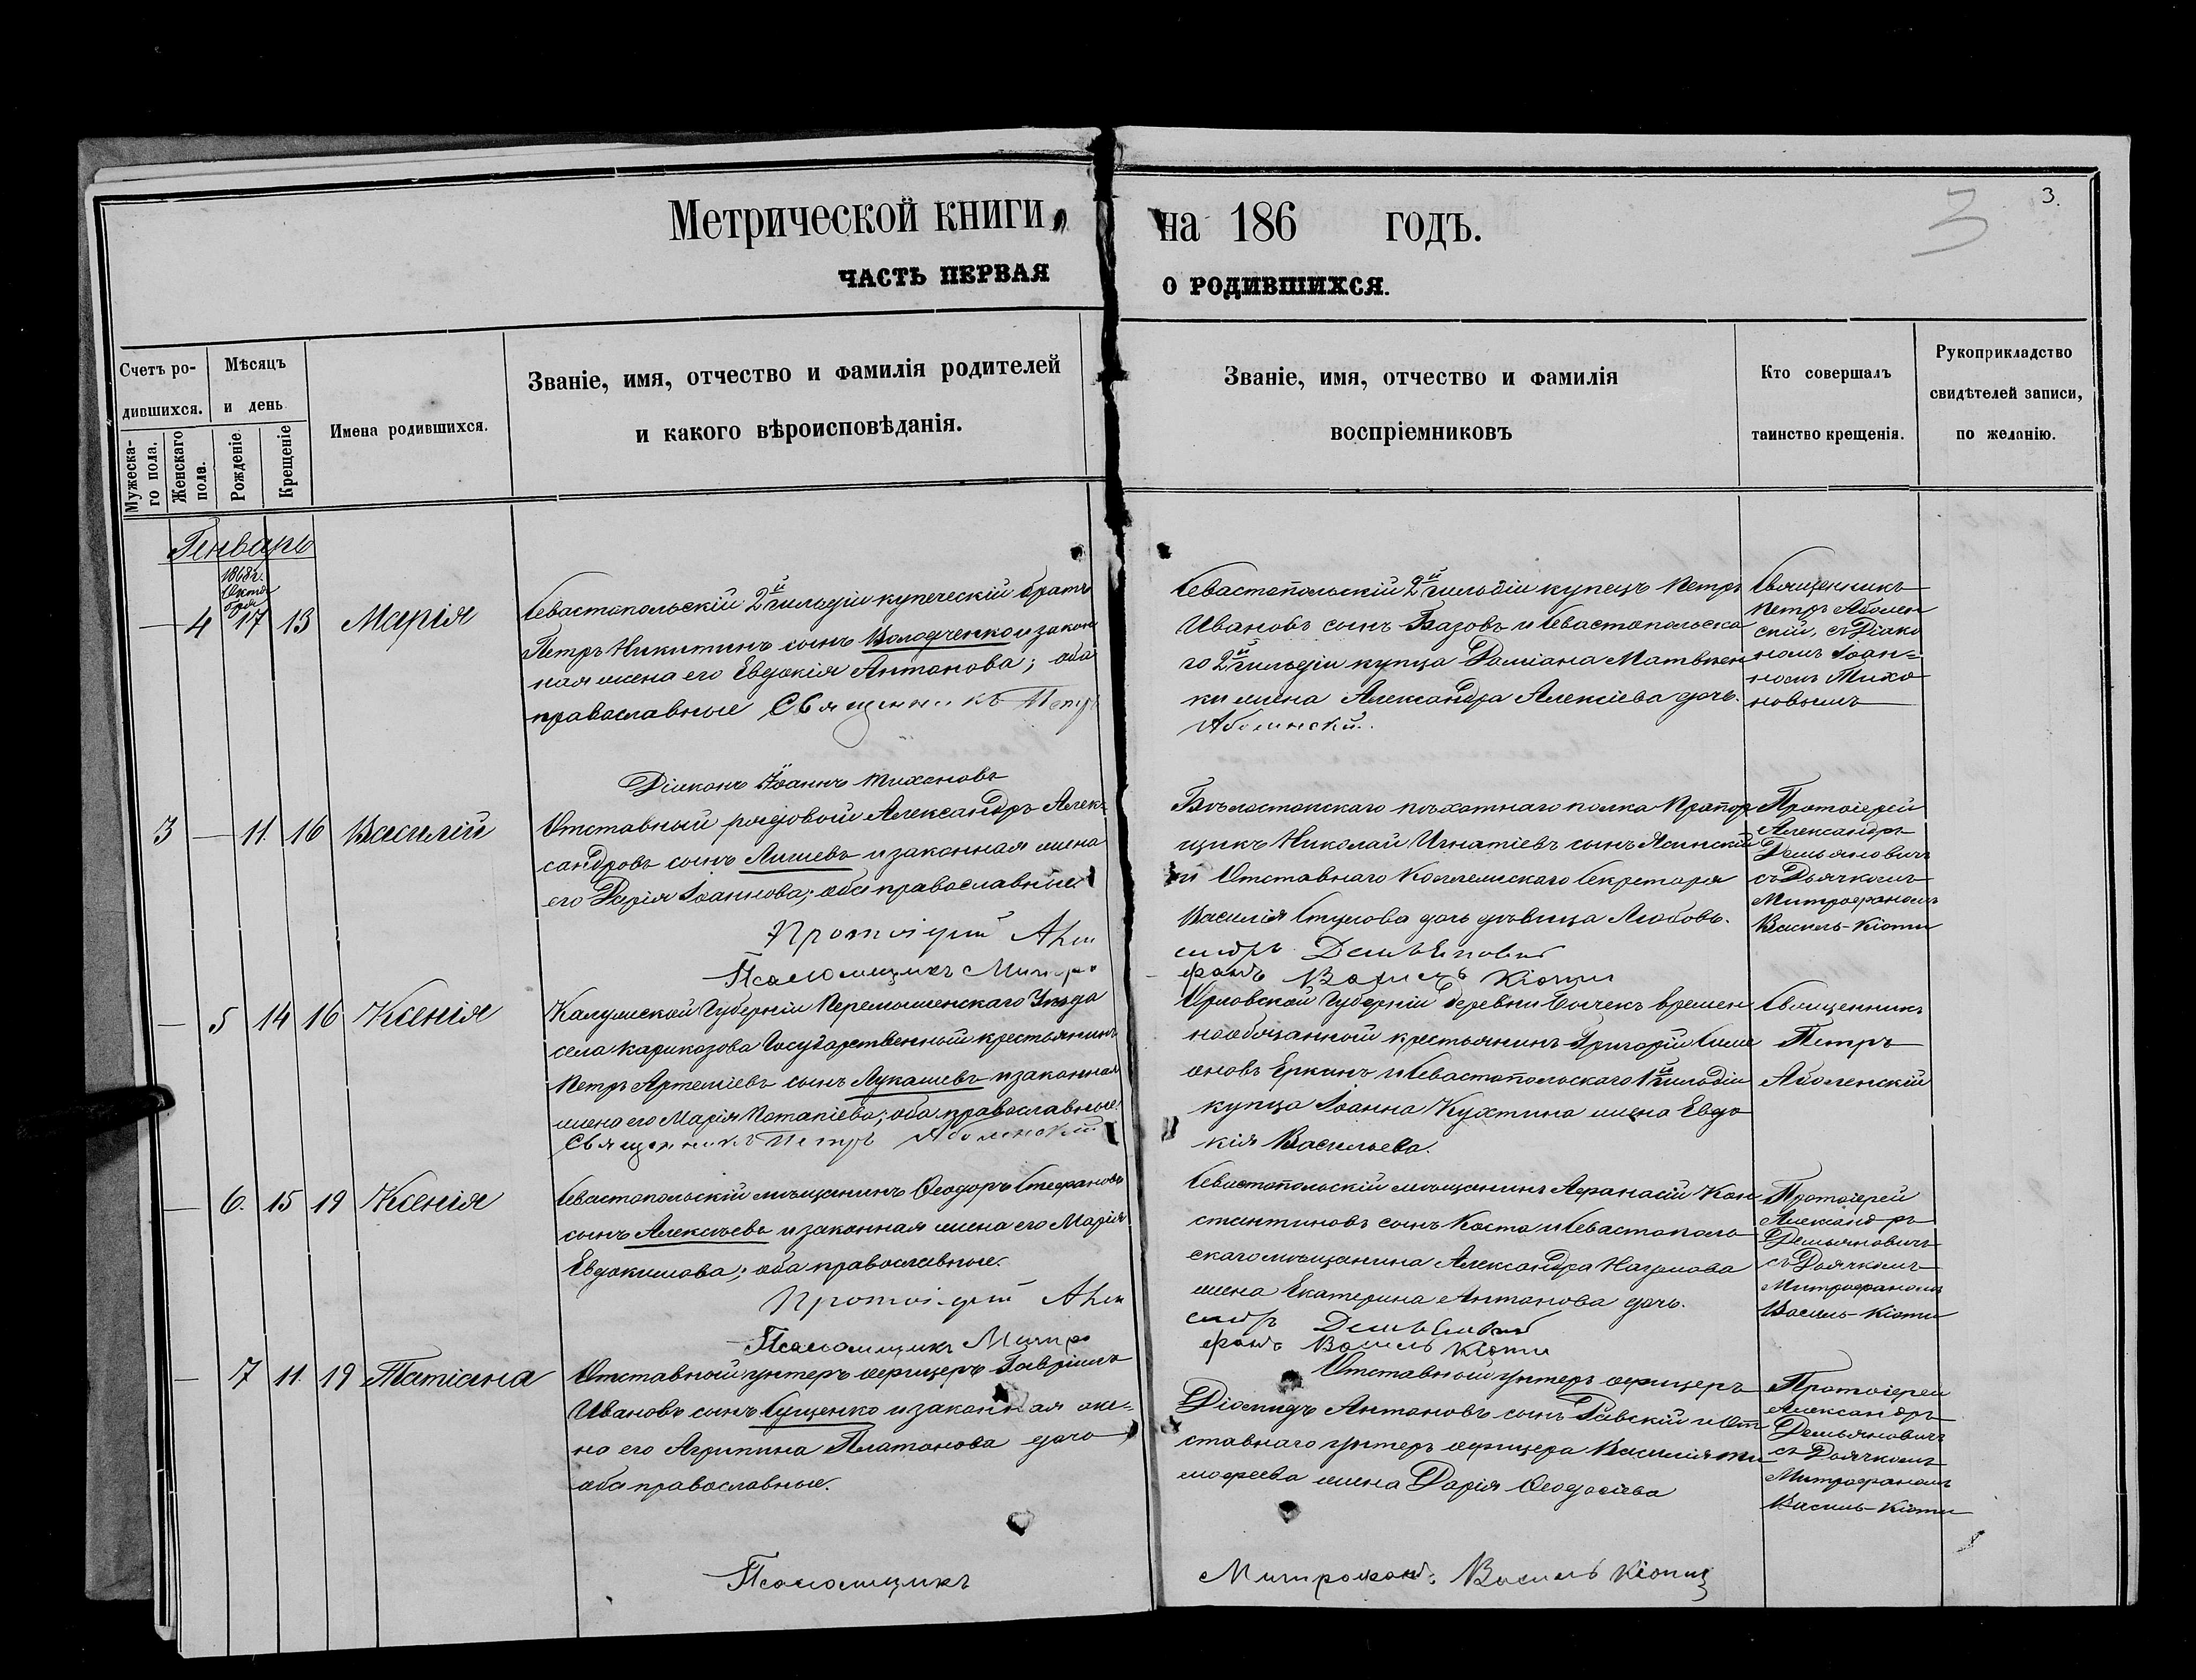 Метрической книги,
на 186 годъ.
3
3.
ЧАСТЬ ПЕРВАЯ
О РОДИВШИХСЯ.
Счетъ ро-
дившихся.
Мужеска-
го пола.
Женскаго
пола.
Мѣсяцъ
и день
Рожденіе.
Крещеніе
Имена родившихся.
Званіе, имя, отчество и фамилія родителей
и какого вѣроисповѣданія.
Званіе, имя, отчество и фамилія
воспріемниковъ
Кто совершалъ
таинство крещенія.
Рукоприкладство
свидѣтелей записи,
по желанію.
Генварь
1868 г.
Октя
бря
— 4 17 13 Марія
Севастопольскій 2й гильдіи купеческій братъ
Петръ Никитинъ сынъ Володченко и закон
ная жена его Евдокія Антонова; оба
православные Священникъ Петръ
Севастопольскій 2й гильдіи купецъ Петръ
Ивановъ сынъ Базовъ и Севастопольска
го 2й гильдіи купца Даміана Матвѣен
ки жена Александра Алексіева дочь.
Аболенскій.
Священникъ
Петръ Аболен
скій, съ Діако
номъ Іоан=
номъ Тихо
новымъ
Діаконъ Іоаннъ Тихоновъ
3 — 11. 16 Василій
Отставный рядовой Александръ Алек-
сандровъ сынъ Лишевъ и законная жена
его Дарія Іоаннова; оба православные.
Протоіерей Алек
Псаломщикъ Митро
Бѣлостокскаго пѣхотнаго полка Прапор
щикъ Николай Игнатіевъ сынъ Ясинскій
и Отставнаго Коллежскаго Секретаря
Василія дочь дѣвица Любовь.
сандръ Демьяновичъ
фанъ Василь Кіоти
Протоіерей
Александръ
Демьяновичъ
съ Дьячкомъ
Митрофаномъ
Василь-Кіоти
— 5 14 16 Ксенія
Калужской Губерніи Перемышенскаго Уѣзда
села Карикозова Государственный крестьянинъ
Петръ Артеміевъ сынъ Лукашевъ и законная
жена его Марія Потапіева; оба православные.
Священникъ Петръ Аболенскій
Орловской Губерніи деревни времен
нообязанный крестьянинъ Григорій Симе
оновъ Еркинъ и Севастопольскаго 1й гильдіи
купца Іоанна Кухтина жена Евдо
кія Васильева.
Священникъ
Петръ
Аболенскій
— 6. 15 19 Ксенія
Севастопольскій мѣщанинъ Ѳеодоръ Стефановъ
сынъ Алексѣевъ и законная жена его Марія
Евдокимова; оба православные.
Протоіерей Алек
Псаломщикъ Митро
Севастопольскій мѣщанинъ Афанасій Кон
стантиновъ сынъ Коста и Севастополь
скаго мѣщанина Александра Нагумова
жена Екатерина Антонова дочь.
сандръ Демьяновичъ
фанъ Василь Кіоти
Протоіерей
Александръ
Демьяновичъ
съ Дьячкомъ
Митрофаномъ
Василь-Кіоти
— 7 11. 19 Татіана
Отставной унтеръ офицеръ Гавріилъ
Ивановъ сынъ Сущенко и законная же=
на его Агрипина Платонова дочь
оба православные.
Отставной унтеръ офицеръ
Діомидъ Антоновъ сынъ Равскій и От
ставнаго унтеръ офицера Василія Ти
мофеева жена Дарія Ѳеодосіева
Протоіерей
Александръ
Демьяновичъ
съ Дьячкомъ
Митрофаномъ
Василь-Кіоти
Псаломщикъ
Митрофанъ Василь Кіоти